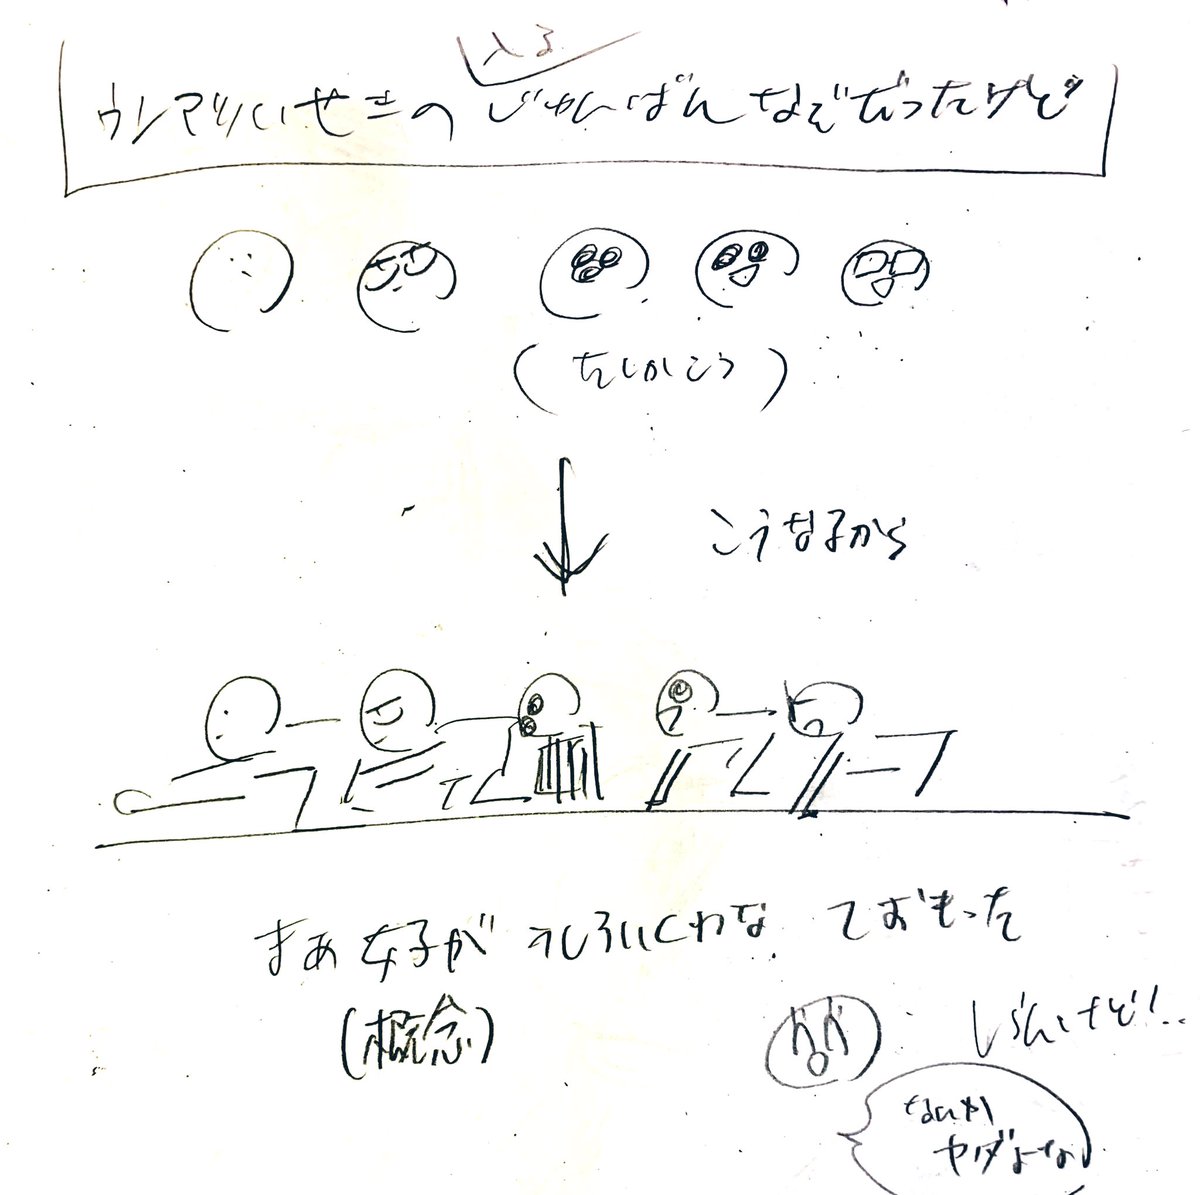 入る
ウンマリいせきの じゅんばん なぞだったけど
(たしかこう)
こうなるから
まあ女子が うしろいくわな ておもった
(概念)
しらんけど!..
なんか
ヤダよな